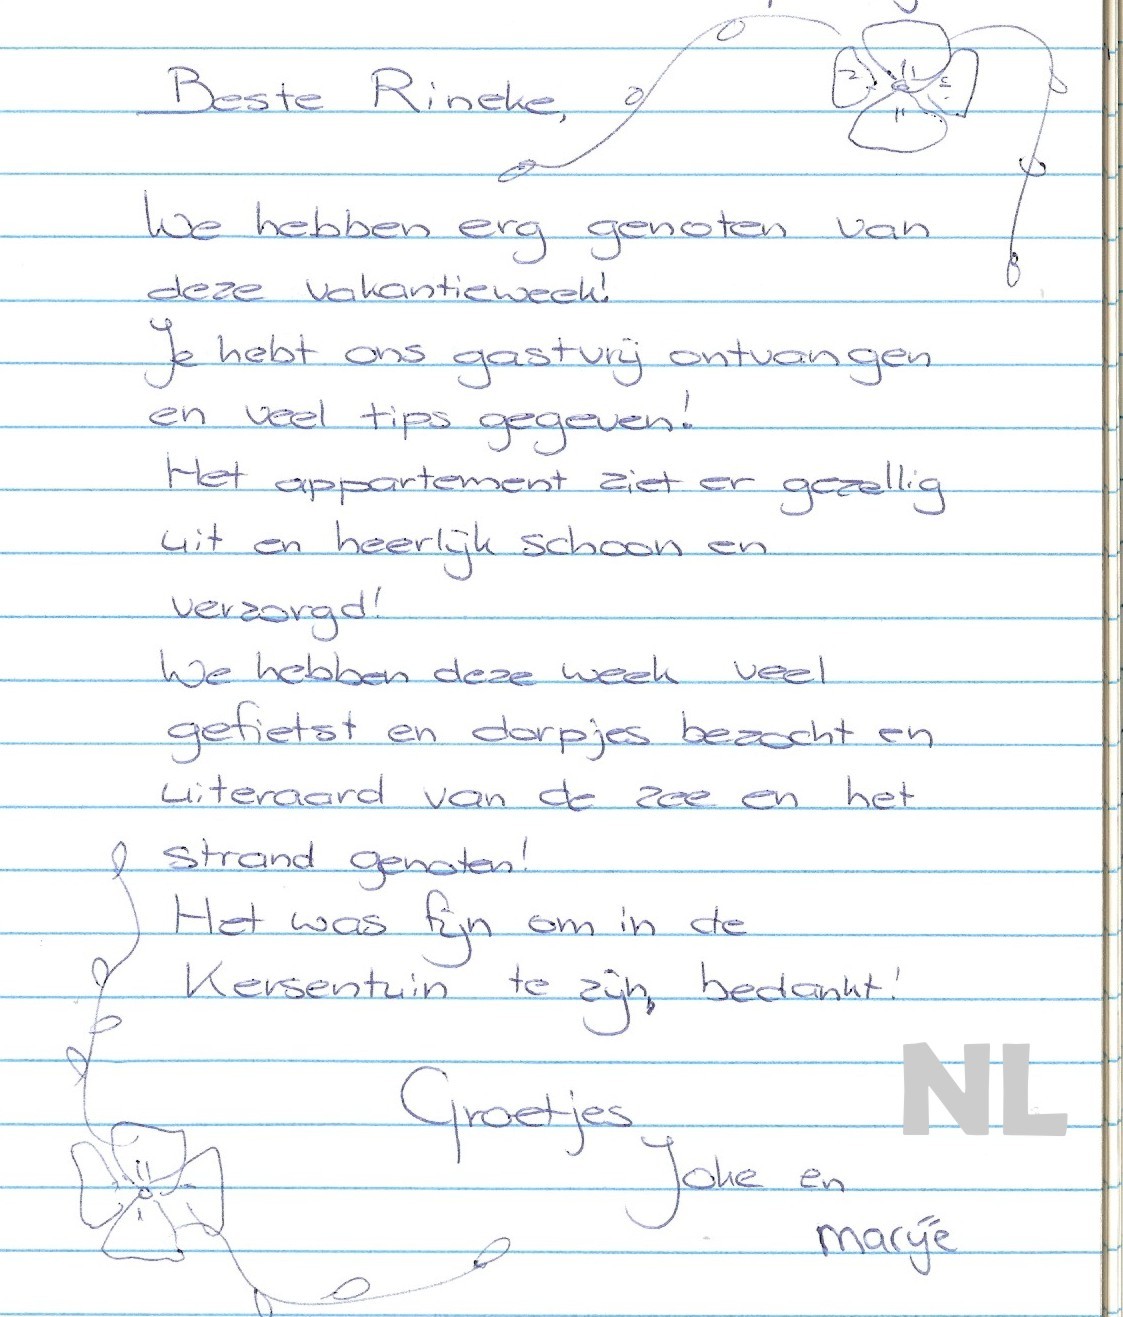 Beste Rineke,
We hebben erg genoten van
deze vakantieweek!
Je hebt ons gastvrij ontvangen
en veel tips gegeven!
Het appartement ziet er gezellig
uit en heerlijk schoon en
verzorgd!
We hebben deze week veel
gefietst en dorpjes bezocht en
uiteraard van de zee en het
strand genoten!
Het was fijn om in de
Kersentuin te zijn, bedankt!
NL
Groetjes
Joke en